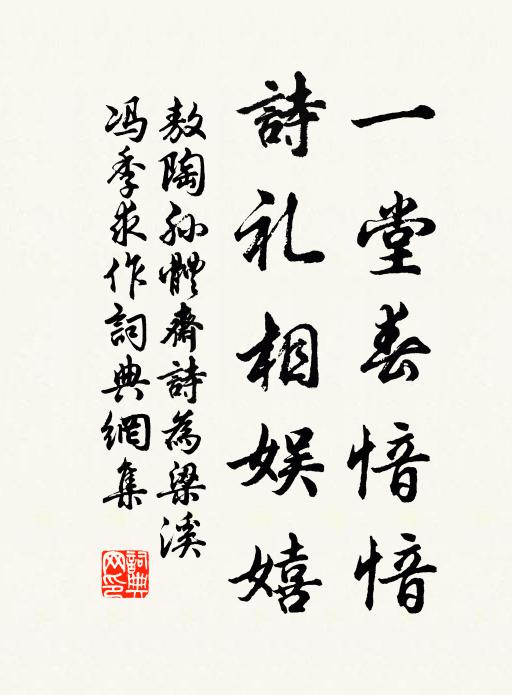 一堂春愔愔
詩礼相娱嬉
敖陶孙體齋詩為梁溪
冯季求作詞典網集
詞典网印